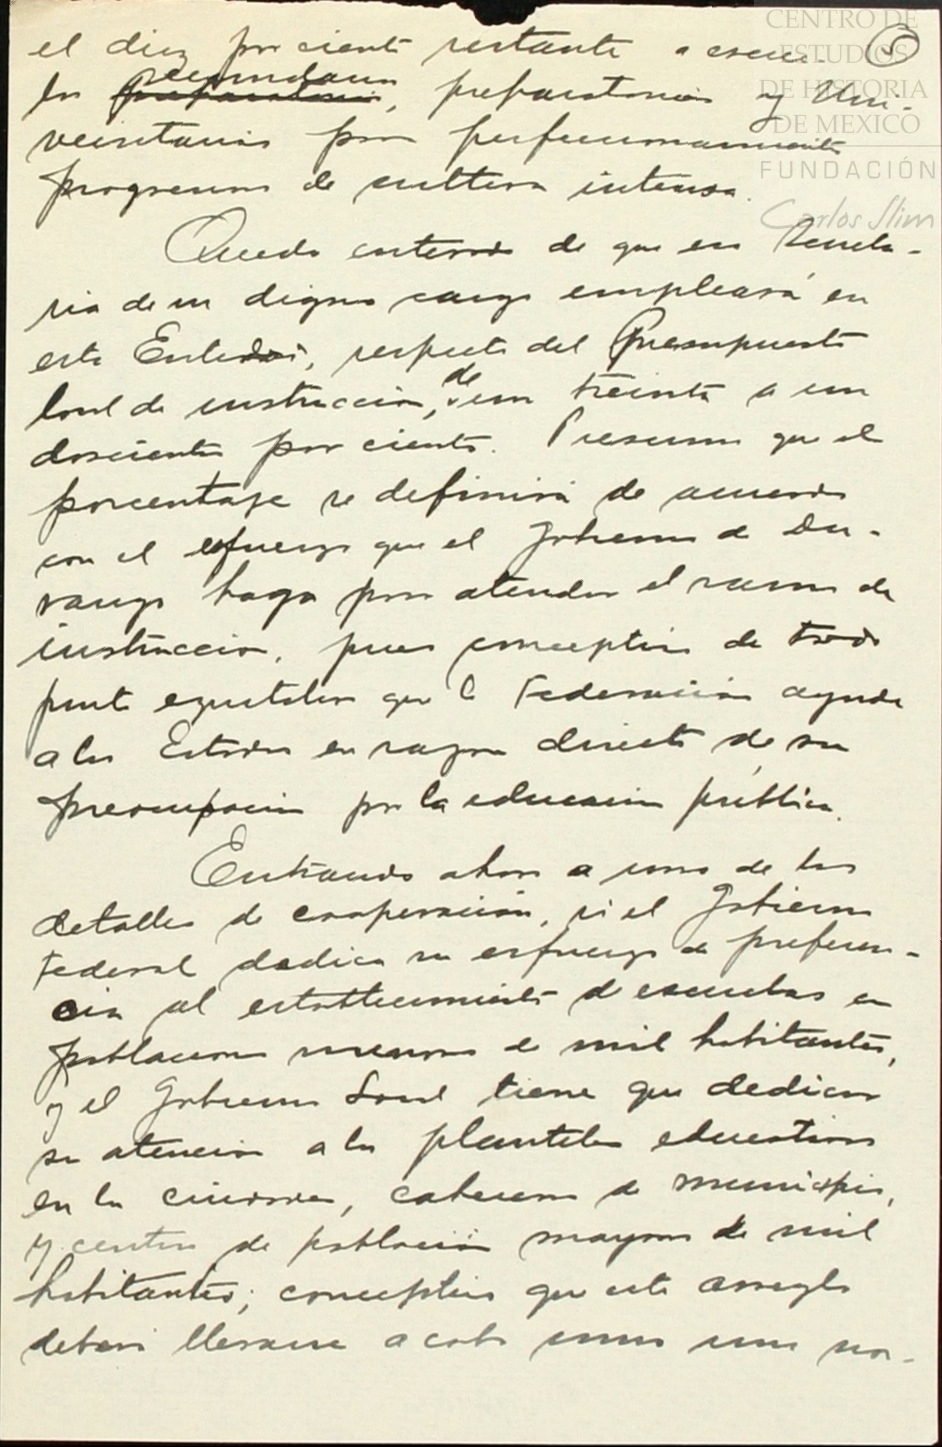 CENTRO DE
ESTUDIOS
DE HISTORIA
DE MEXICO
FUNDACIÓN
Carlos Slim
5
el diez por ciento restante a escue-
las secundarias
preparatorias, preparatorias y Uni-
versitarias por perfeccionamiento
programas de cultura intensa.
Quedo enterado de que esa Secreta-
ria de su digno cargo empleará en
esta Entidad, respecto del Presupuesto
local de instrucción, de un treinta a un
doscientos por ciento. Presumo que el
porcentaje se definirá de acuerdo
con el esfuerzo que el Gobierno de Du-
rango haga por atender el ramo de
instrucción, pues conceptúo de todo
punto equitativo que la Federación ayude
a los Estados en razón directa de su
preocupación por la educación pública.
Entrando ahora a uno de los
detalles de cooperación, si el Gobierno
Federal dedica su esfuerzo de preferen-
cia al establecimiento de escuelas en
poblaciones menores de mil habitantes,
y el Gobierno Local tiene que dedicar
su atención a los planteles educativos
en las ciudades, cabeceras de municipio,
y centros de población mayores de mil
habitantes; conceptúo que este arreglo
deberá llevarse a cabo como una nor-